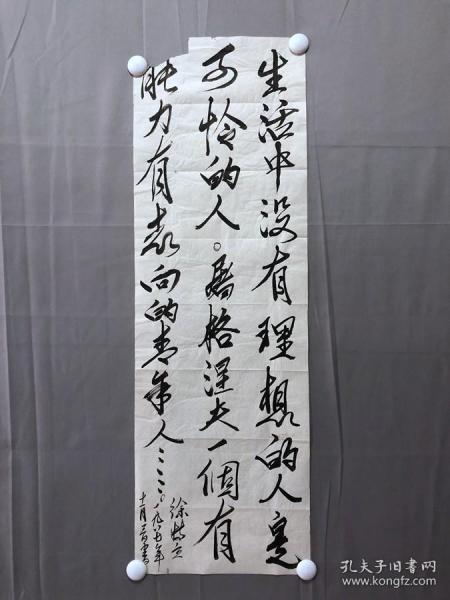 生活中没有理想的人是
可怜的人。屠格涅夫一個有
能力有志向的青年人……。一九八七年
十一月 書
徐
孔夫子旧书网
www.kongfz.com